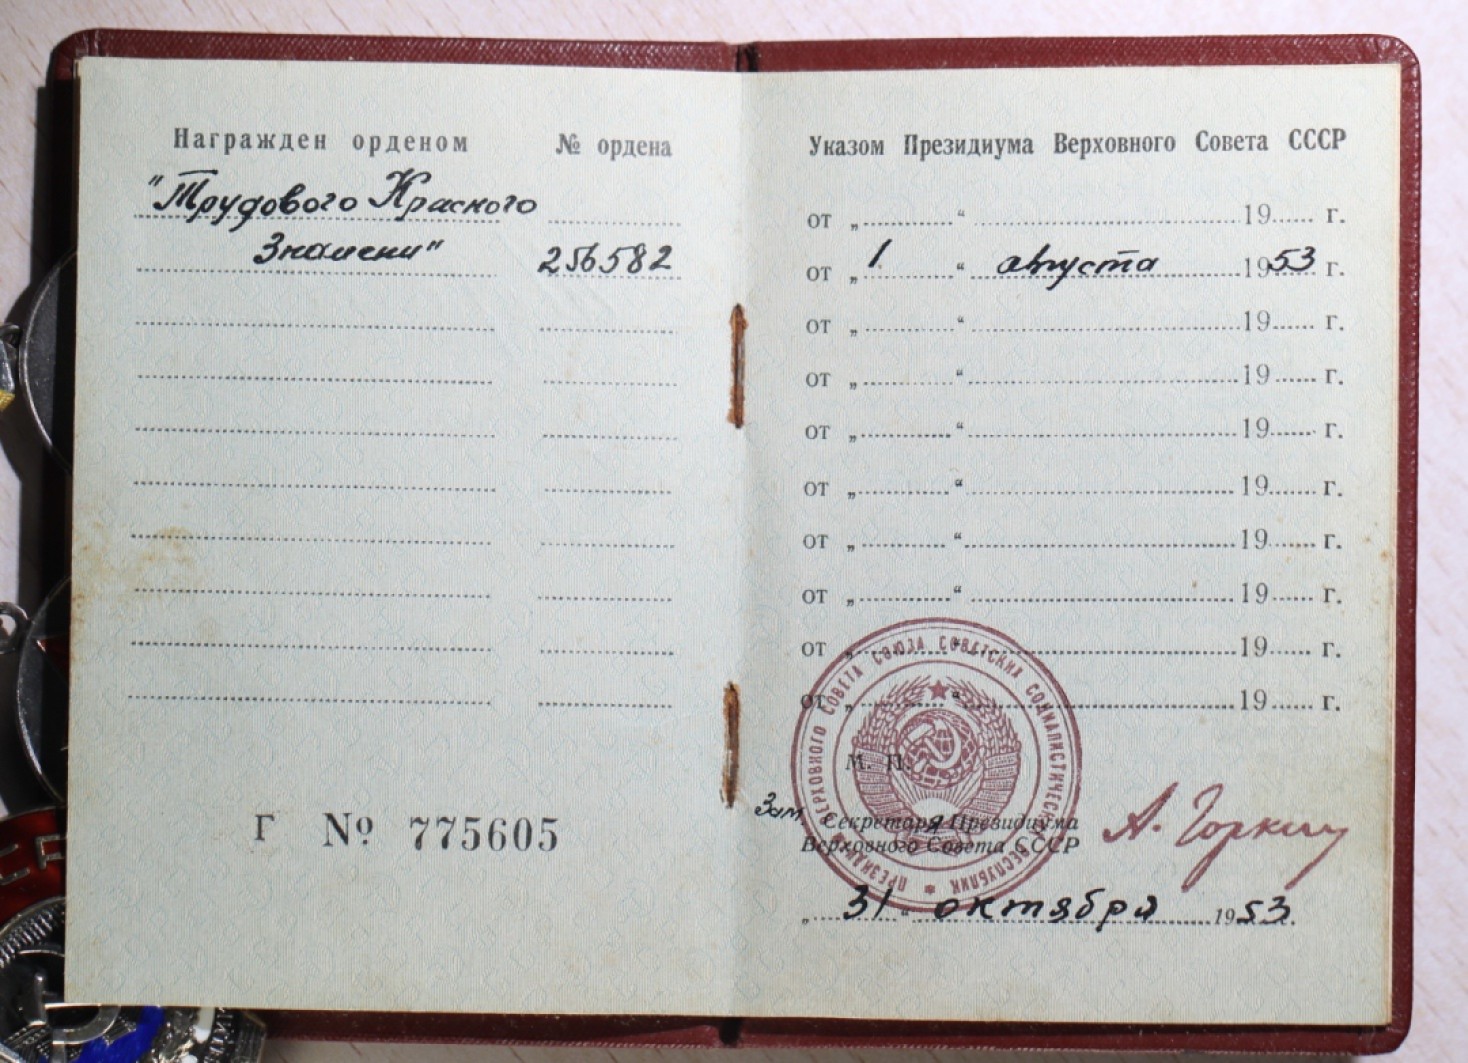 Награжден орденом № ордена
"Трудового Красного
Знамени" 256582
Г № 775605
Указом Президиума Верховного Совета СССР
от „ “ 19 г.
от „ 1 “ августа 1953 г.
от „ “ 19 г.
от „ “ 19 г.
от „ “ 19 г.
от „ “ 19 г.
от „ “ 19 г.
от „ “ 19 г.
от „ “ 19 г.
от „ “ 19 г.
М. П.
Зам. Секретаря Президиума
Верховного Совета СССР
А. Горкин
„ 31 “ октября 1953 г.
ПРЕЗИДИУМ ВЕРХОВНОГО СОВЕТА СОЮЗА СОВЕТСКИХ СОЦИАЛИСТИЧЕСКИХ РЕСПУБЛИК